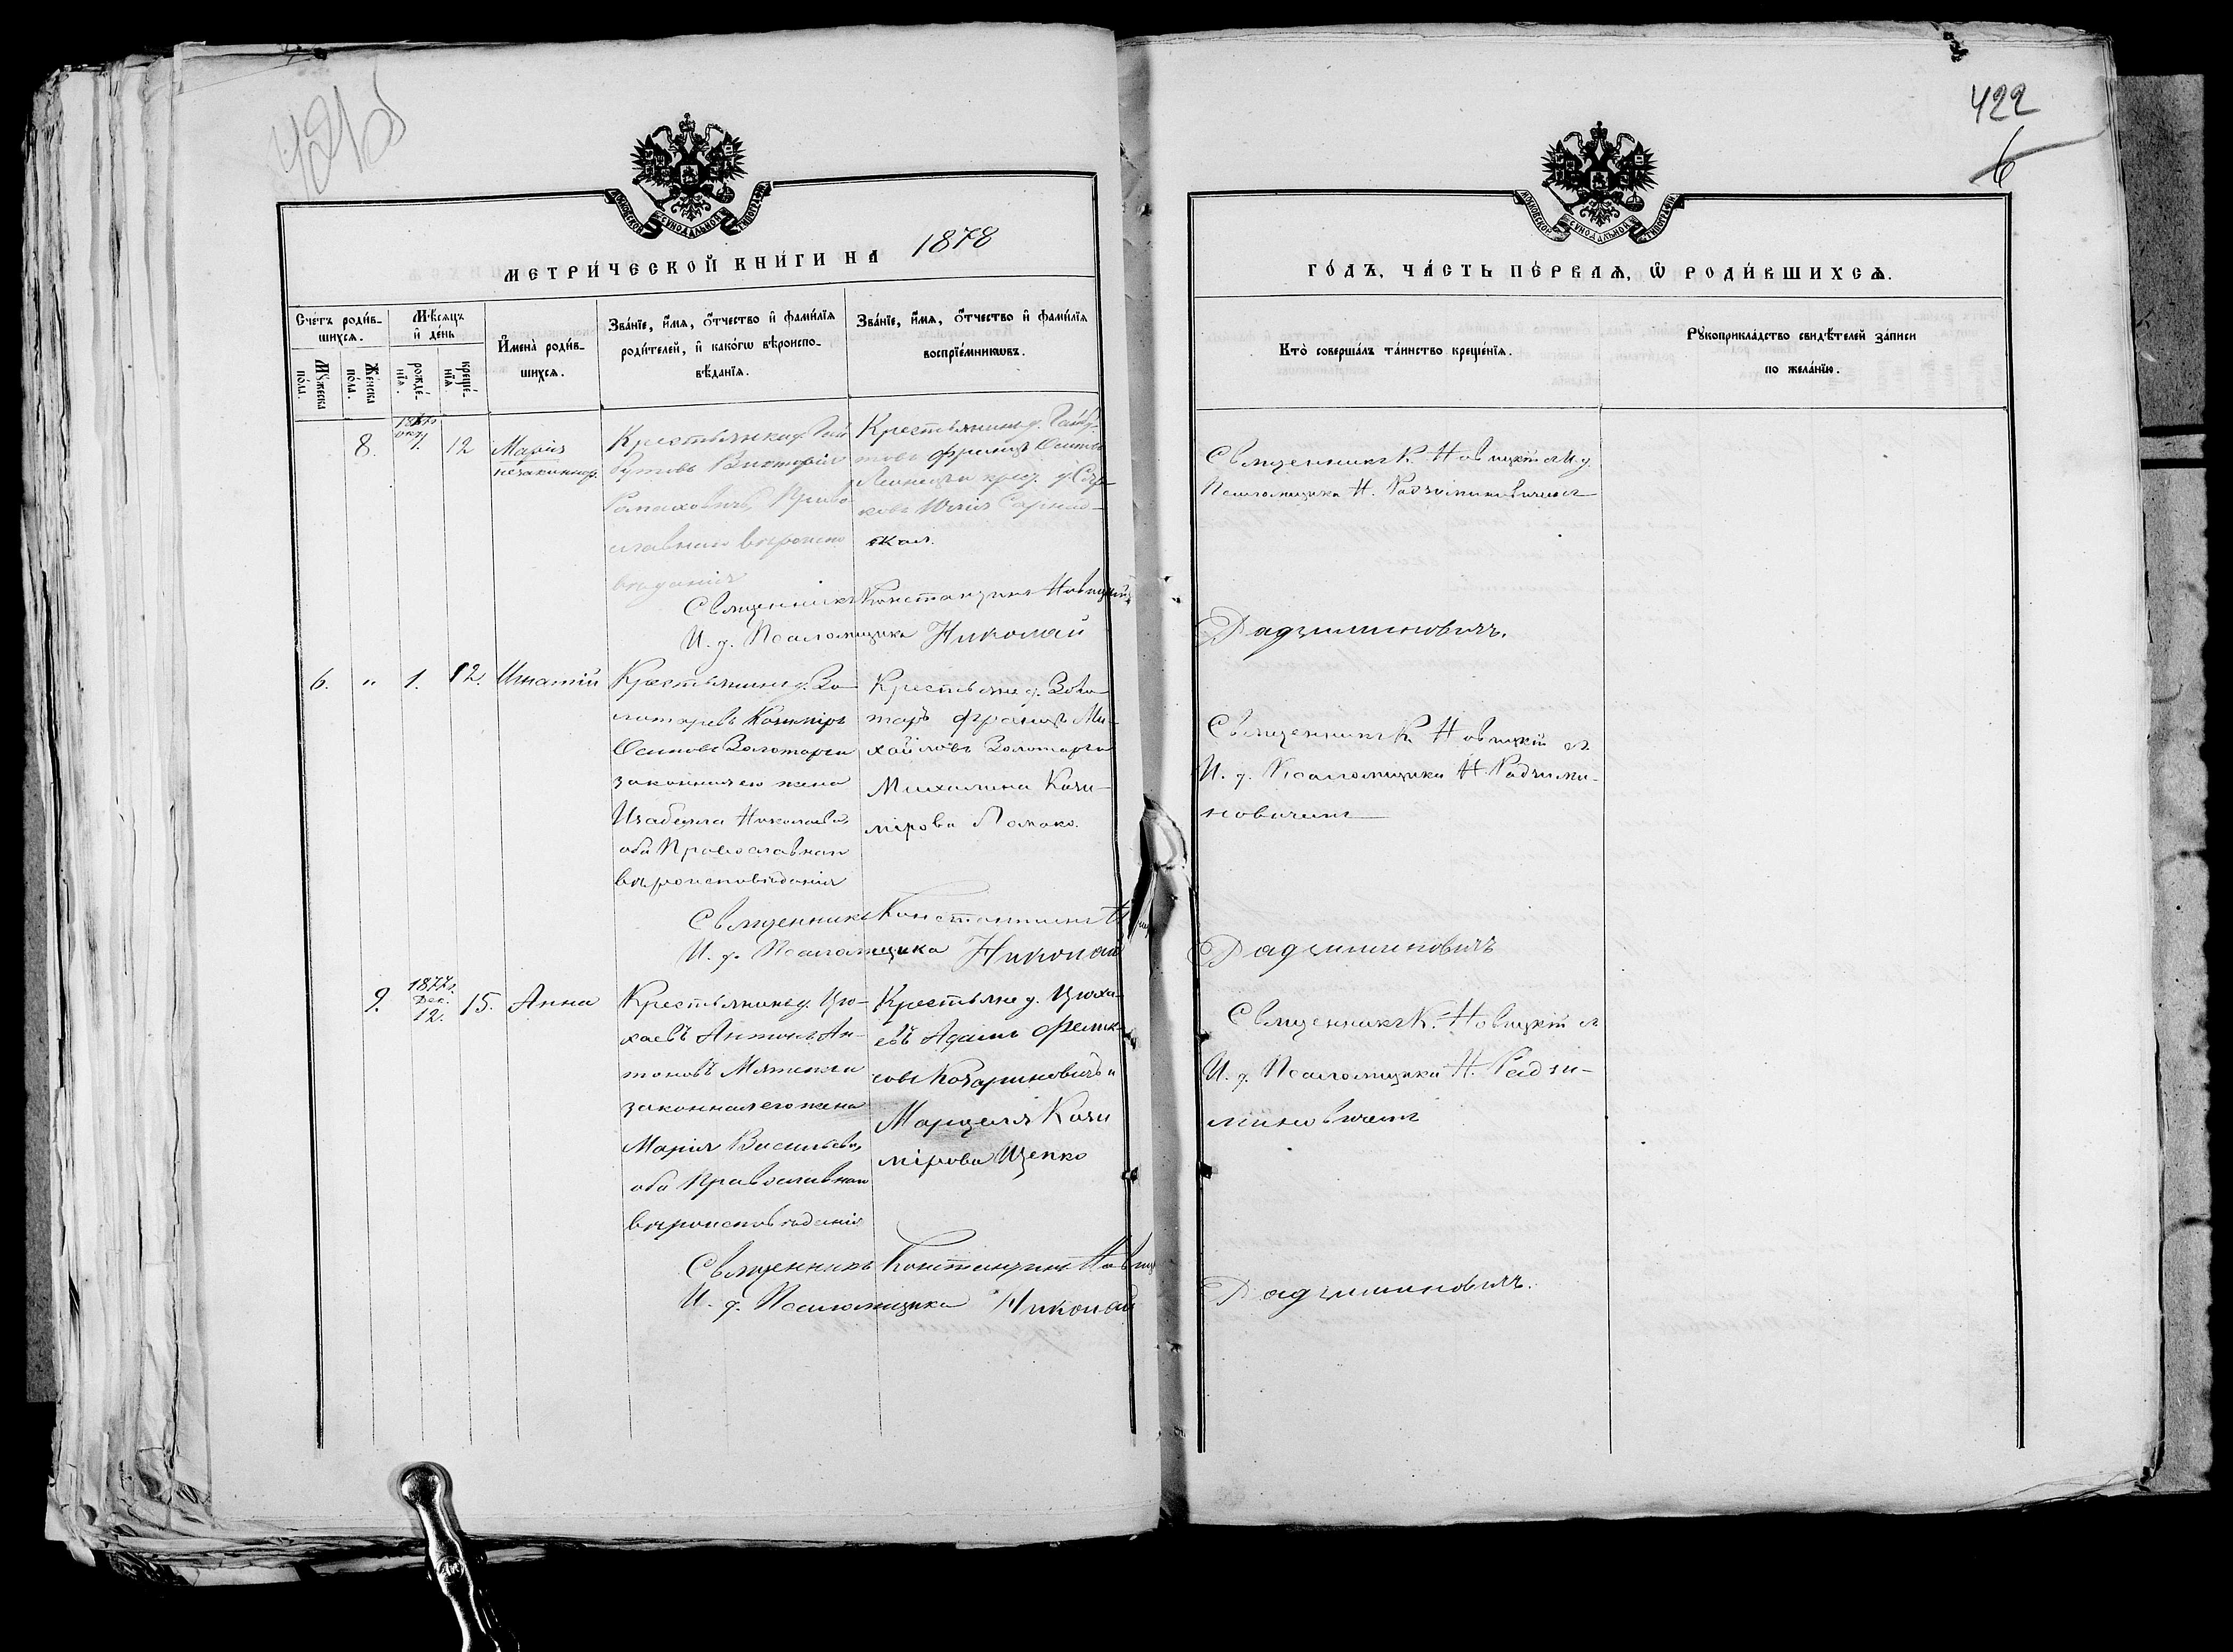 422
6
МОСКОВСКОЙ СѴНОДАЛЬНОЙ ТИПОГРАФІИ
МОСКОВСКОЙ СѴНОДАЛЬНОЙ ТИПОГРАФІИ
МЕТРИ́ЧЕСКОЙ КНИ́ГИ НА 1878
ГО́ДЪ, ЧА́СТЬ ПЕ́РВАѦ, Ѡ҆ РОДИ́ВШИХСѦ.
Сче́тъ роди́в-
шихсѧ.
Мꙋ́жеска по́ла.
Же́нска по́ла.
Мѣ́сѧцъ
и҆ де́нь
рожде́-
нїѧ.
креще́-
нїѧ.
И҆мена̀ роди́в-
шихсѧ.
Зва́нїе, и҆́мѧ, ѻ҆́тчество и҆ фами́лїѧ
роди́телей, и҆ како́гѡ вѣроиспо-
вѣ́данїѧ.
Зва́нїе, и҆́мѧ, ѻ҆́тчество и҆ фами́лїѧ
воспрїе́мникѡвъ.
Кто̀ соверша́лъ та́инство креще́нїѧ.
Рꙋкоприкла́дство свидѣ́телей за́писи
по жела́нїю.
8.
12
Марія
незаконнор.
Крестьянки д.
Викторіи
Право
славнаго вѣроиспо
вѣданія
Крестьянинъ д.
Францъ Осиповъ
Юлія
ская.
Священникъ К. Новицкій съ И. д.
Псаломщика Н. Радзиминовичемъ
Священникъ Константинъ Новицкій
И. д. Псаломщика Николай
Радзиминовичъ.
6. " 1. 12. Игнатій
Крестьянинъ д. Зо-
лотаревъ Казиміръ
Осиповъ Золотарь и
законная его жена
Изабелла Николаева,
оба Православнаго
вѣроисповѣданія
Крестьяне д. Золо-
таръ Францъ Ми-
хайловъ Золотарь и
Михалина Кази-
мірова
Священникъ К. Новицкій съ
И. д. Псаломщика Н. Радзими-
новичемъ
Священникъ Константинъ
И. д. Псаломщика Николай
Радзиминовичъ
9. 1877 г.
Дек.
12. 15. Анна
Крестьянинъ д. Цю-
хаевъ Антонъ Ан-
тоновъ и
законная его жена
Марія Васильева,
оба Православнаго
вѣроисповѣданія
Крестьяне д. Цюха-
евъ Адамъ Феликс-
овъ Козариновичъ и
Марцеля Кази
мірова Щепко
Священникъ К. Новицкій съ
И. д. Псаломщика Н. Радзи-
миновичемъ
Священникъ Константинъ
И. д. Псаломщика Николай
Радзиминовичъ.